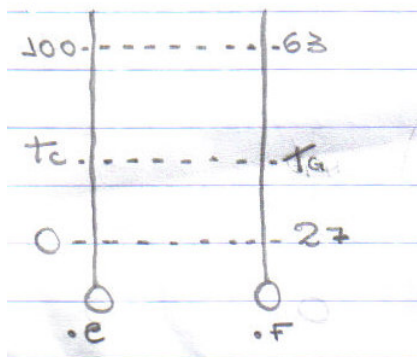 100 63
tc tG
0 27
.C .F